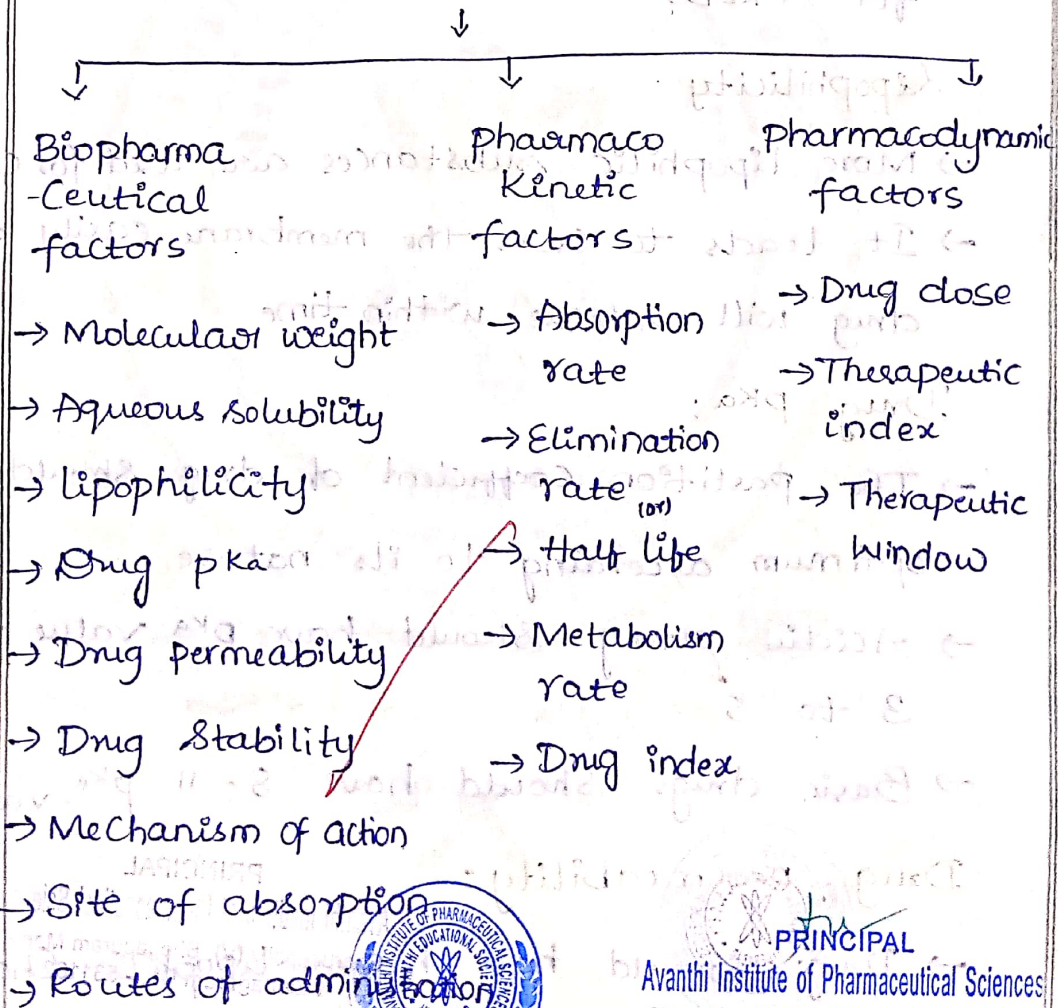 Biopharma
-Ceutical
factors
→ Molecular weight
→ Aqueous solubility
→ lipophilicity
→ Drug pka
→ Drug permeability
→ Drug Stability
→ Mechanism of action
→ Site of absorption
→ Routes of administration
Pharmaco
Kinetic
factors
→ Absorption
rate
→ Elimination
rate (or)
→ Half life
→ Metabolism
rate
→ Drug index
Pharmacodynamic
factors
→ Drug dose
→ Therapeutic
index
→ Therapeutic
Window
PRINCIPAL
Avanthi Institute of Pharmaceutical Sciences